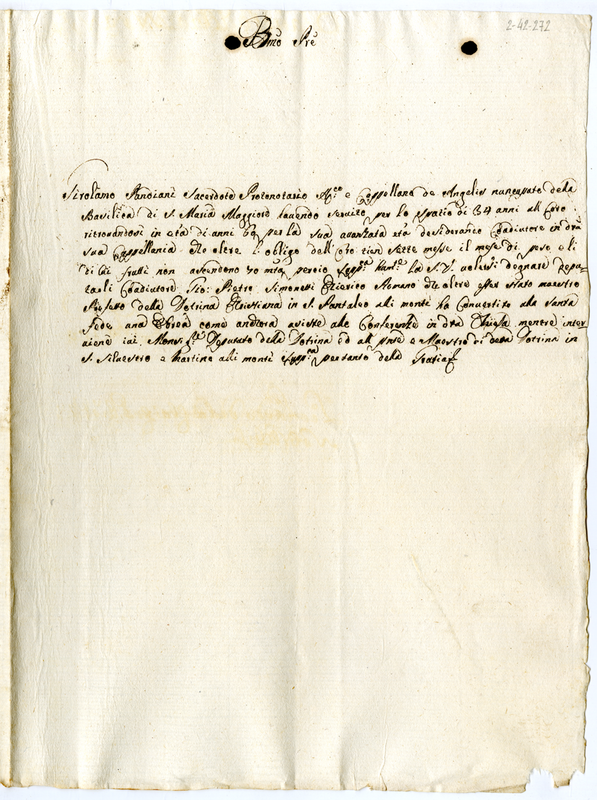 2-42-272
Bmo Pre
Girolamo Sacerdote Protonotario Apco e Cappellano de Angelis nuncupato della
Basilica di S. Maria Maggiore havendo servito per lo spatio di 34 anni al Coro
ritrovandosi in età di anni 69 per la sua avanzata età desiderarebbe Coadiutore in dta
sua Cappellania che oltre l'obligo dell Coro tien sette messe il mese di peso e li
di cui frutti non ascendono 70 mta perciò suppca humte la S.V. volersi degnare depu-
tarli Coadiutore Gio: Pietro Simonetti Chierico Romano che oltre esser stato maestro
Prefetto della Dotrina Christiana in S. Pantaleo alli monti ha convertito alla santa
fede una Ebrea come ancora assiste alle Conferenze in dta Chiesa mentre inter
viene ivi Monsr Deputato della Dotrina ed al pnte è Maestro di detta Dotrina in
S. Silvestro e Martino alli monti supplica pertanto della Gratia